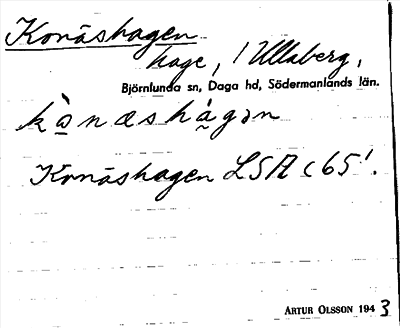 Konäshagen
hage, / Ullaberg,
Björnlunda sn, Daga hd, Södermanlands län.
kὰnæshágən
Konäshagen LSA c 65'.
ARTUR OLSSON 1943